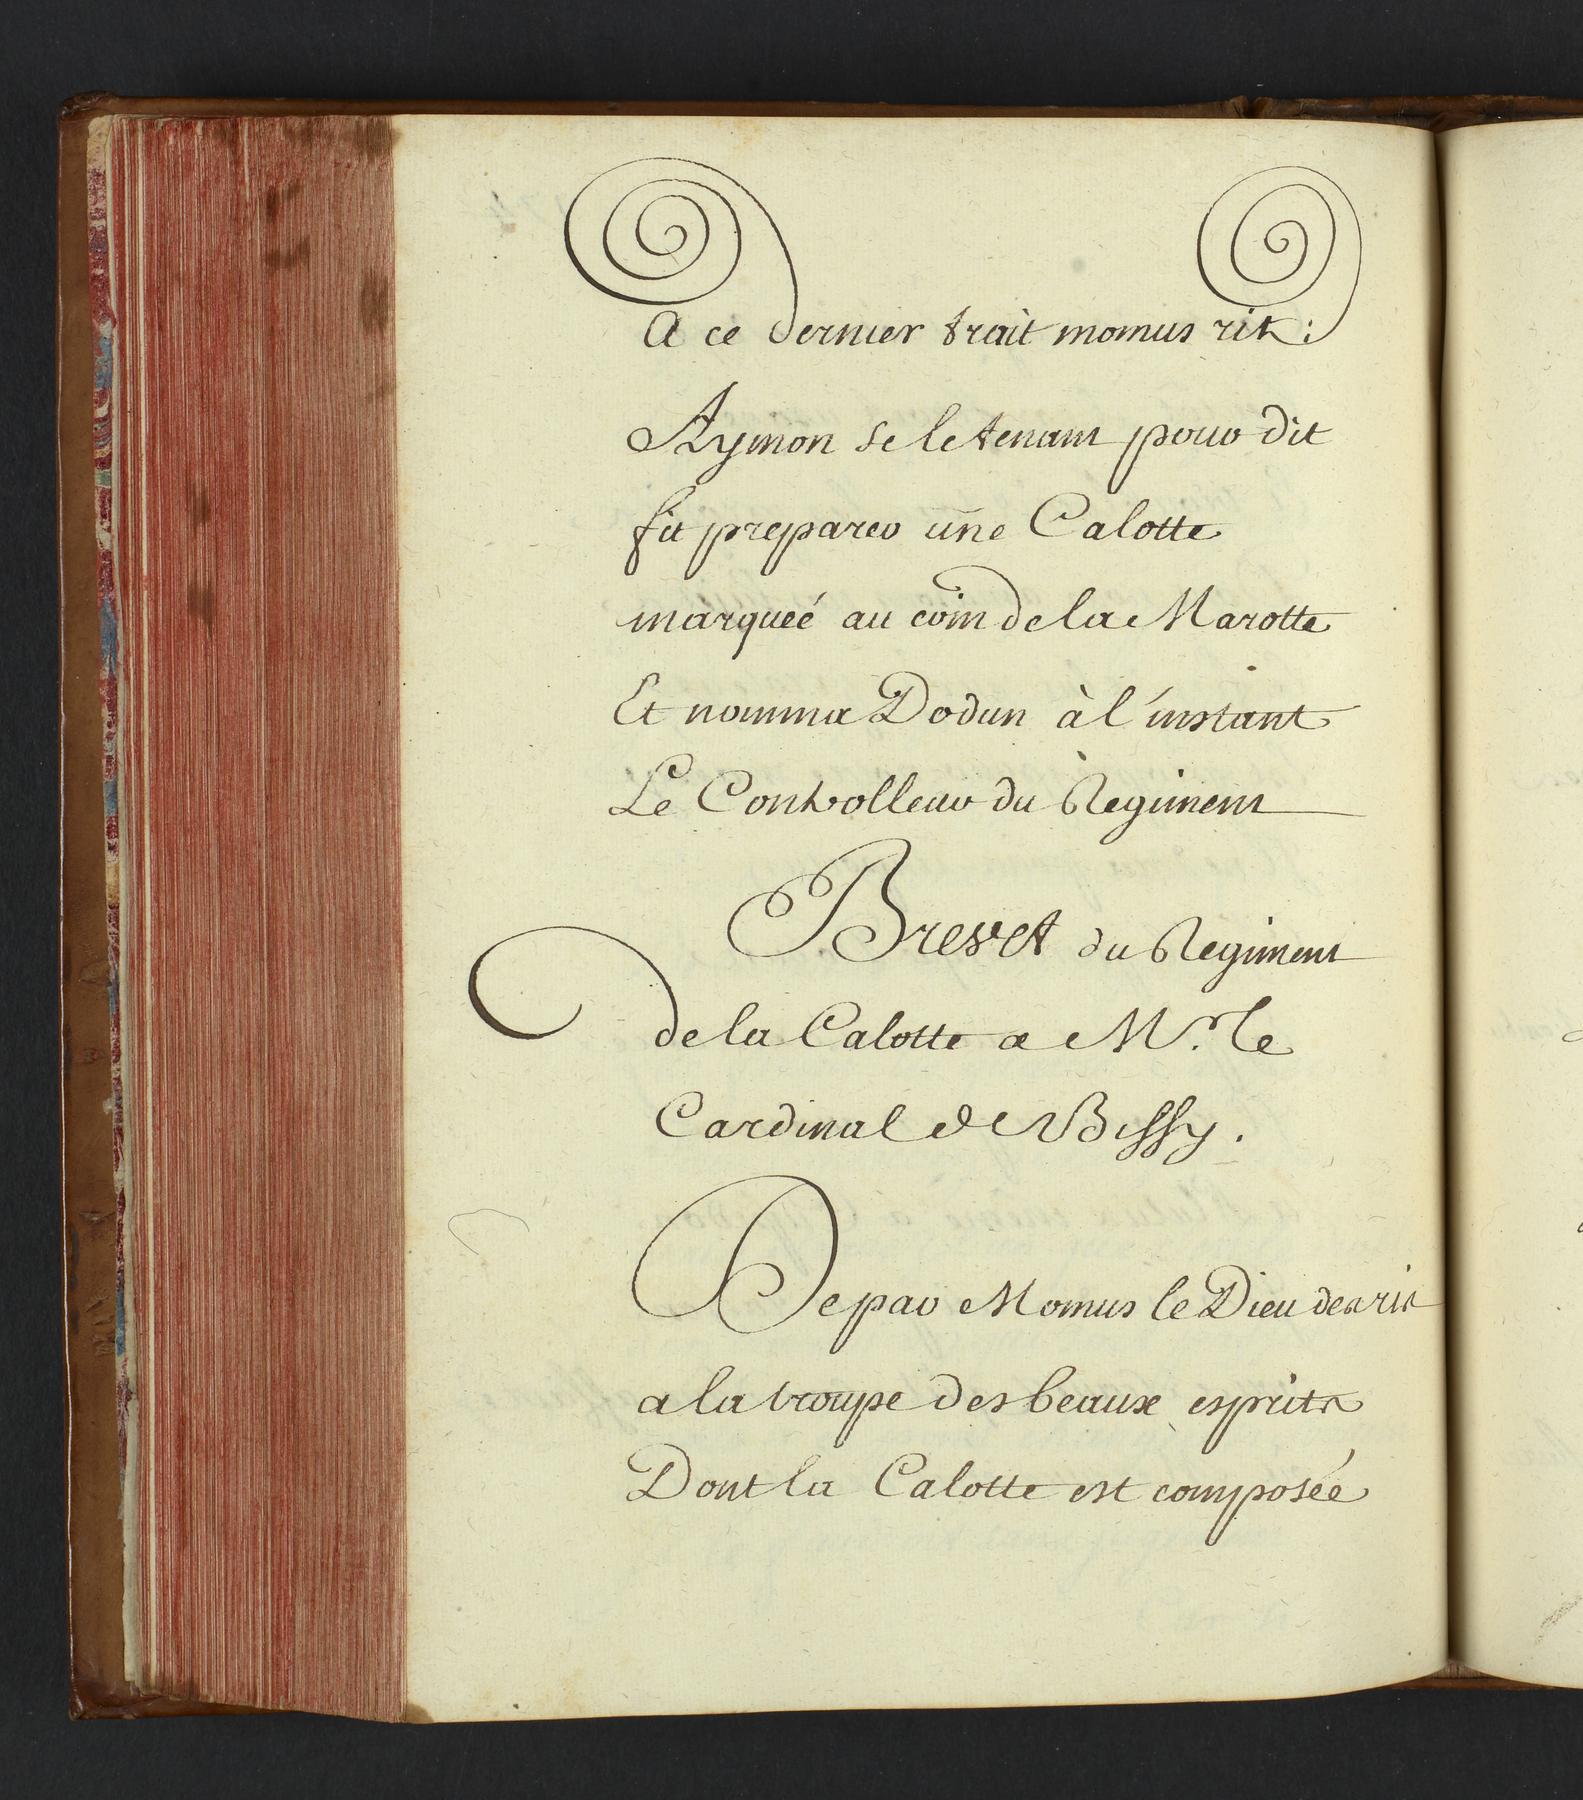 A ce dernier trait momus rit :
Aymon se le tenant pour dit
fit preparer une Calotte
marqueé au coin de la Marotte
Et nomma Dodun à l'instant
Le Controlleur du Regiment
Brevet du Regiment
de la Calotte a Mr. le
Cardinal de Bissy.
De par Momus le Dieu des ris
a la troupe des beaux esprits
Dont la Calotte est composée